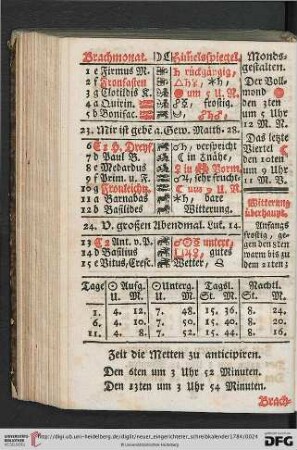 Brachmonat. DC Himelsspiegel, Monds-
gestalten.
1 e Firmus M. ♄ rückgängig,
2 f Fronfasten △♄♂, ✶♄, Der Voll-
3 g Clotildis K. um 5 U. N. mond
4 a Quirin. frostig. den 3ten
5 d Bonifac. um 5 Uhr
12 M. N.
23. Mir ist gebẽ a. Gew. Matth. 28. Das letzte
C 1 H. Dreyf. verspricht Viertel
7 d Paul B. in Nähe, den 10ten
8 e Medardus um 9 Uhr
9 f Prim. u. F. sehr frucht- 11 M. V.
10 g Fronleichn. um 9 U. N.
11 a Barnabas ✶♄, bare Witterung
12 b Basilides Witterung. überhaupt.
24. V. großen Abendmal. Luk. 14. Anfangs
frostig, ge-
13 C 2 Ant. v. P. untert, gen den 8ten
14 d Basilius gutes warm bis zu
15 e Vitus, Cresc. Wetter, dem 21ten
Tage ☉ Aufg. ☉ Unterg. Tagsl. Nachtl.
U. M. U. M. St. M. St. M.
1. 4. 12. 7. 48. 15. 36. 8. 24.
6. 4. 10. 7. 50. 15. 40. 8. 20.
11. 4. 8. 7. 52. 15. 44. 8. 16.
Zeit die Metten zu anticipiren.
Den 6ten um 3 Uhr 52 Minuten.
Den 13ten um 3 Uhr 54 Minuten.
Brach-
UNIVERSITÄTS-BIBLIOTHEK HEIDELBERG
http://digi.ub.uni-heidelberg.de/diglit/neuer_eingerichteter_schreibkalender1784/0024
© Universitätsbibliothek Heidelberg
gefördert durch die DFG